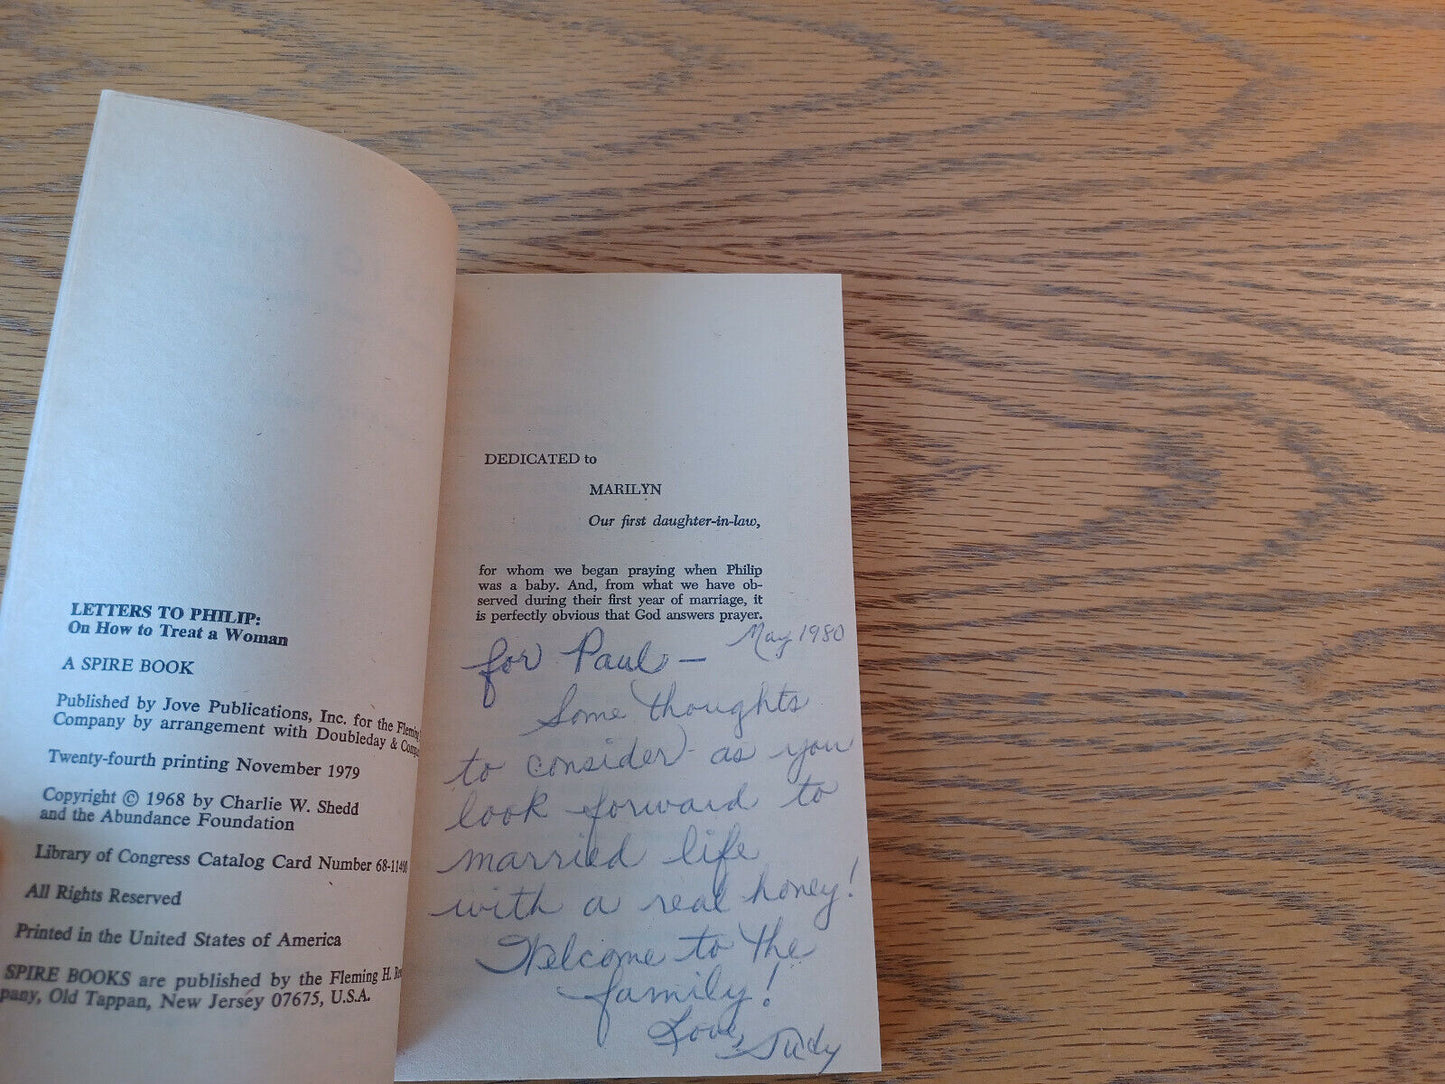 LETTERS TO PHILIP:
On How to Treat a Woman
A SPIRE BOOK
Published by Jove Publications, Inc. for the Fleming
Company by arrangement with Doubleday &
Twenty-fourth printing November 1979
Copyright © 1968 by Charlie W. Shedd
and the Abundance Foundation
Library of Congress Catalog Card Number 68-11490
All Rights Reserved
Printed in the United States of America
SPIRE BOOKS are published by the Fleming H.
pany, Old Tappan, New Jersey 07675, U.S.A.
DEDICATED to
MARILYN
Our first daughter-in-law,
for whom we began praying when Philip
was a baby. And, from what we have ob-
served during their first year of marriage, it
is perfectly obvious that God answers prayer.
May 1980
for Paul —
Some thoughts
to consider as you
look forward to
married life
with a real honey!
Welcome to the
family!
Love,
Judy